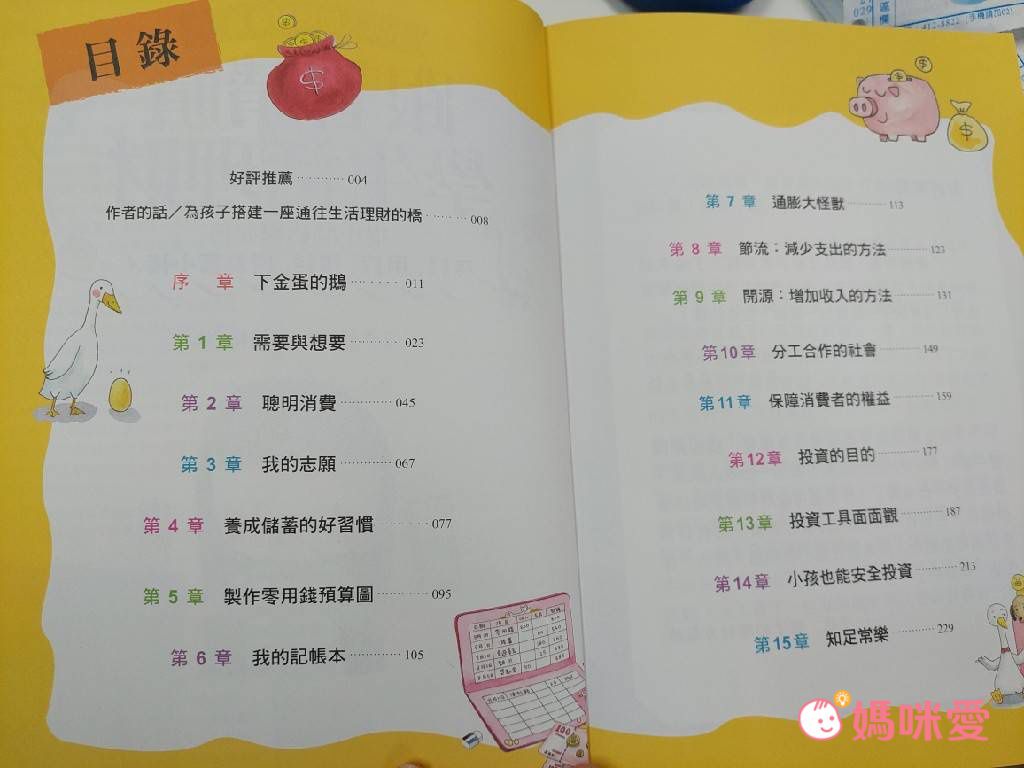 目錄
好評推薦 004
作者的話／為孩子搭建一座通往生活理財的橋 008
序章 下金蛋的鵝 011
第1章 需要與想要 023
第2章 聰明消費 045
第3章 我的志願 067
第4章 養成儲蓄的好習慣 077
第5章 製作零用錢預算圖 095
第6章 我的記帳本 105
第7章 通膨大怪獸 113
第8章 節流：減少支出的方法 123
第9章 開源：增加收入的方法 131
第10章 分工合作的社會 149
第11章 保障消費者的權益 159
第12章 投資的目的 177
第13章 投資工具面面觀 187
第14章 小孩也能安全投資 213
第15章 知足常樂 229
媽咪愛